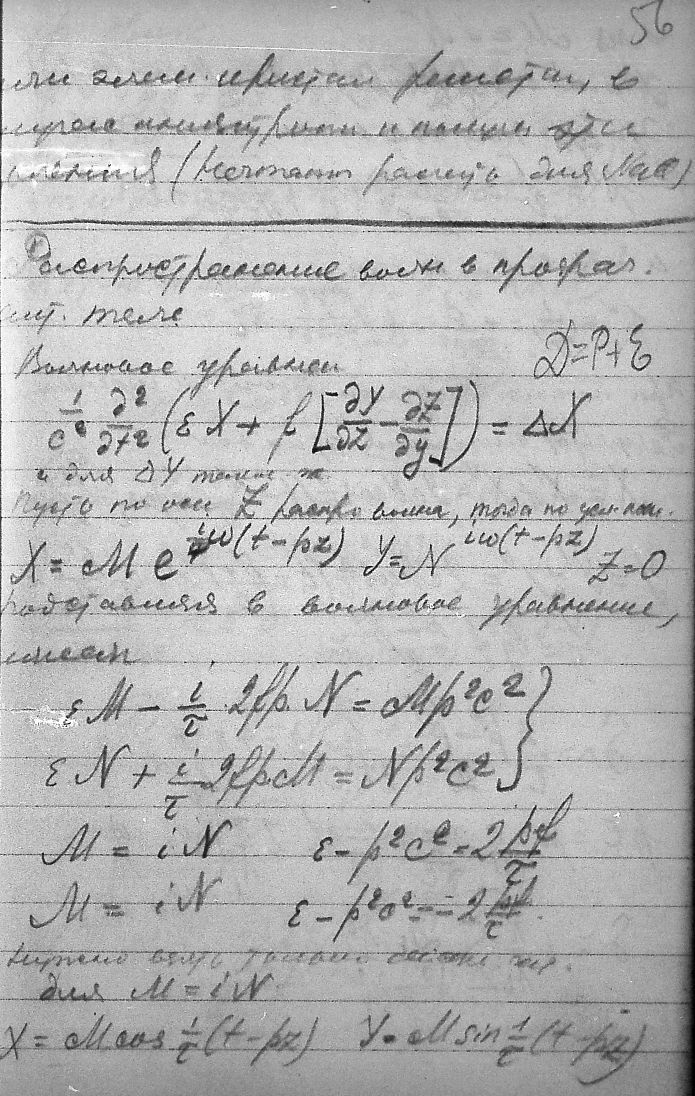 56
или элем. кристал решотки, в
и
(Нечитат расчеть для NaCl)
Распространение волн в прозрач.
теле
Волновое уравнен D=P+ℰ
1/c² ∂²/∂t² (εX + f[∂Y/∂z − ∂Z/∂y]) = ΔX
и для ΔY также ж
Пусть по оси Z распро волна, тогда по
X = M e^{iω(t−pz)} Y = N^{iω(t−pz)} Z=0
подставляя в волновое уравнение,
имеем
εM − i/τ 2fp N = Mp²c² }
εN + i/τ 2fpM = Np²c²
M = iN ε − p²c² = 2 pf/τ
M = iN ε − p²c² = − 2 pf/τ
нужно взять только
для M = iN
X = M cos 1/τ (t − pz) Y = M sin 1/τ (t − pz)